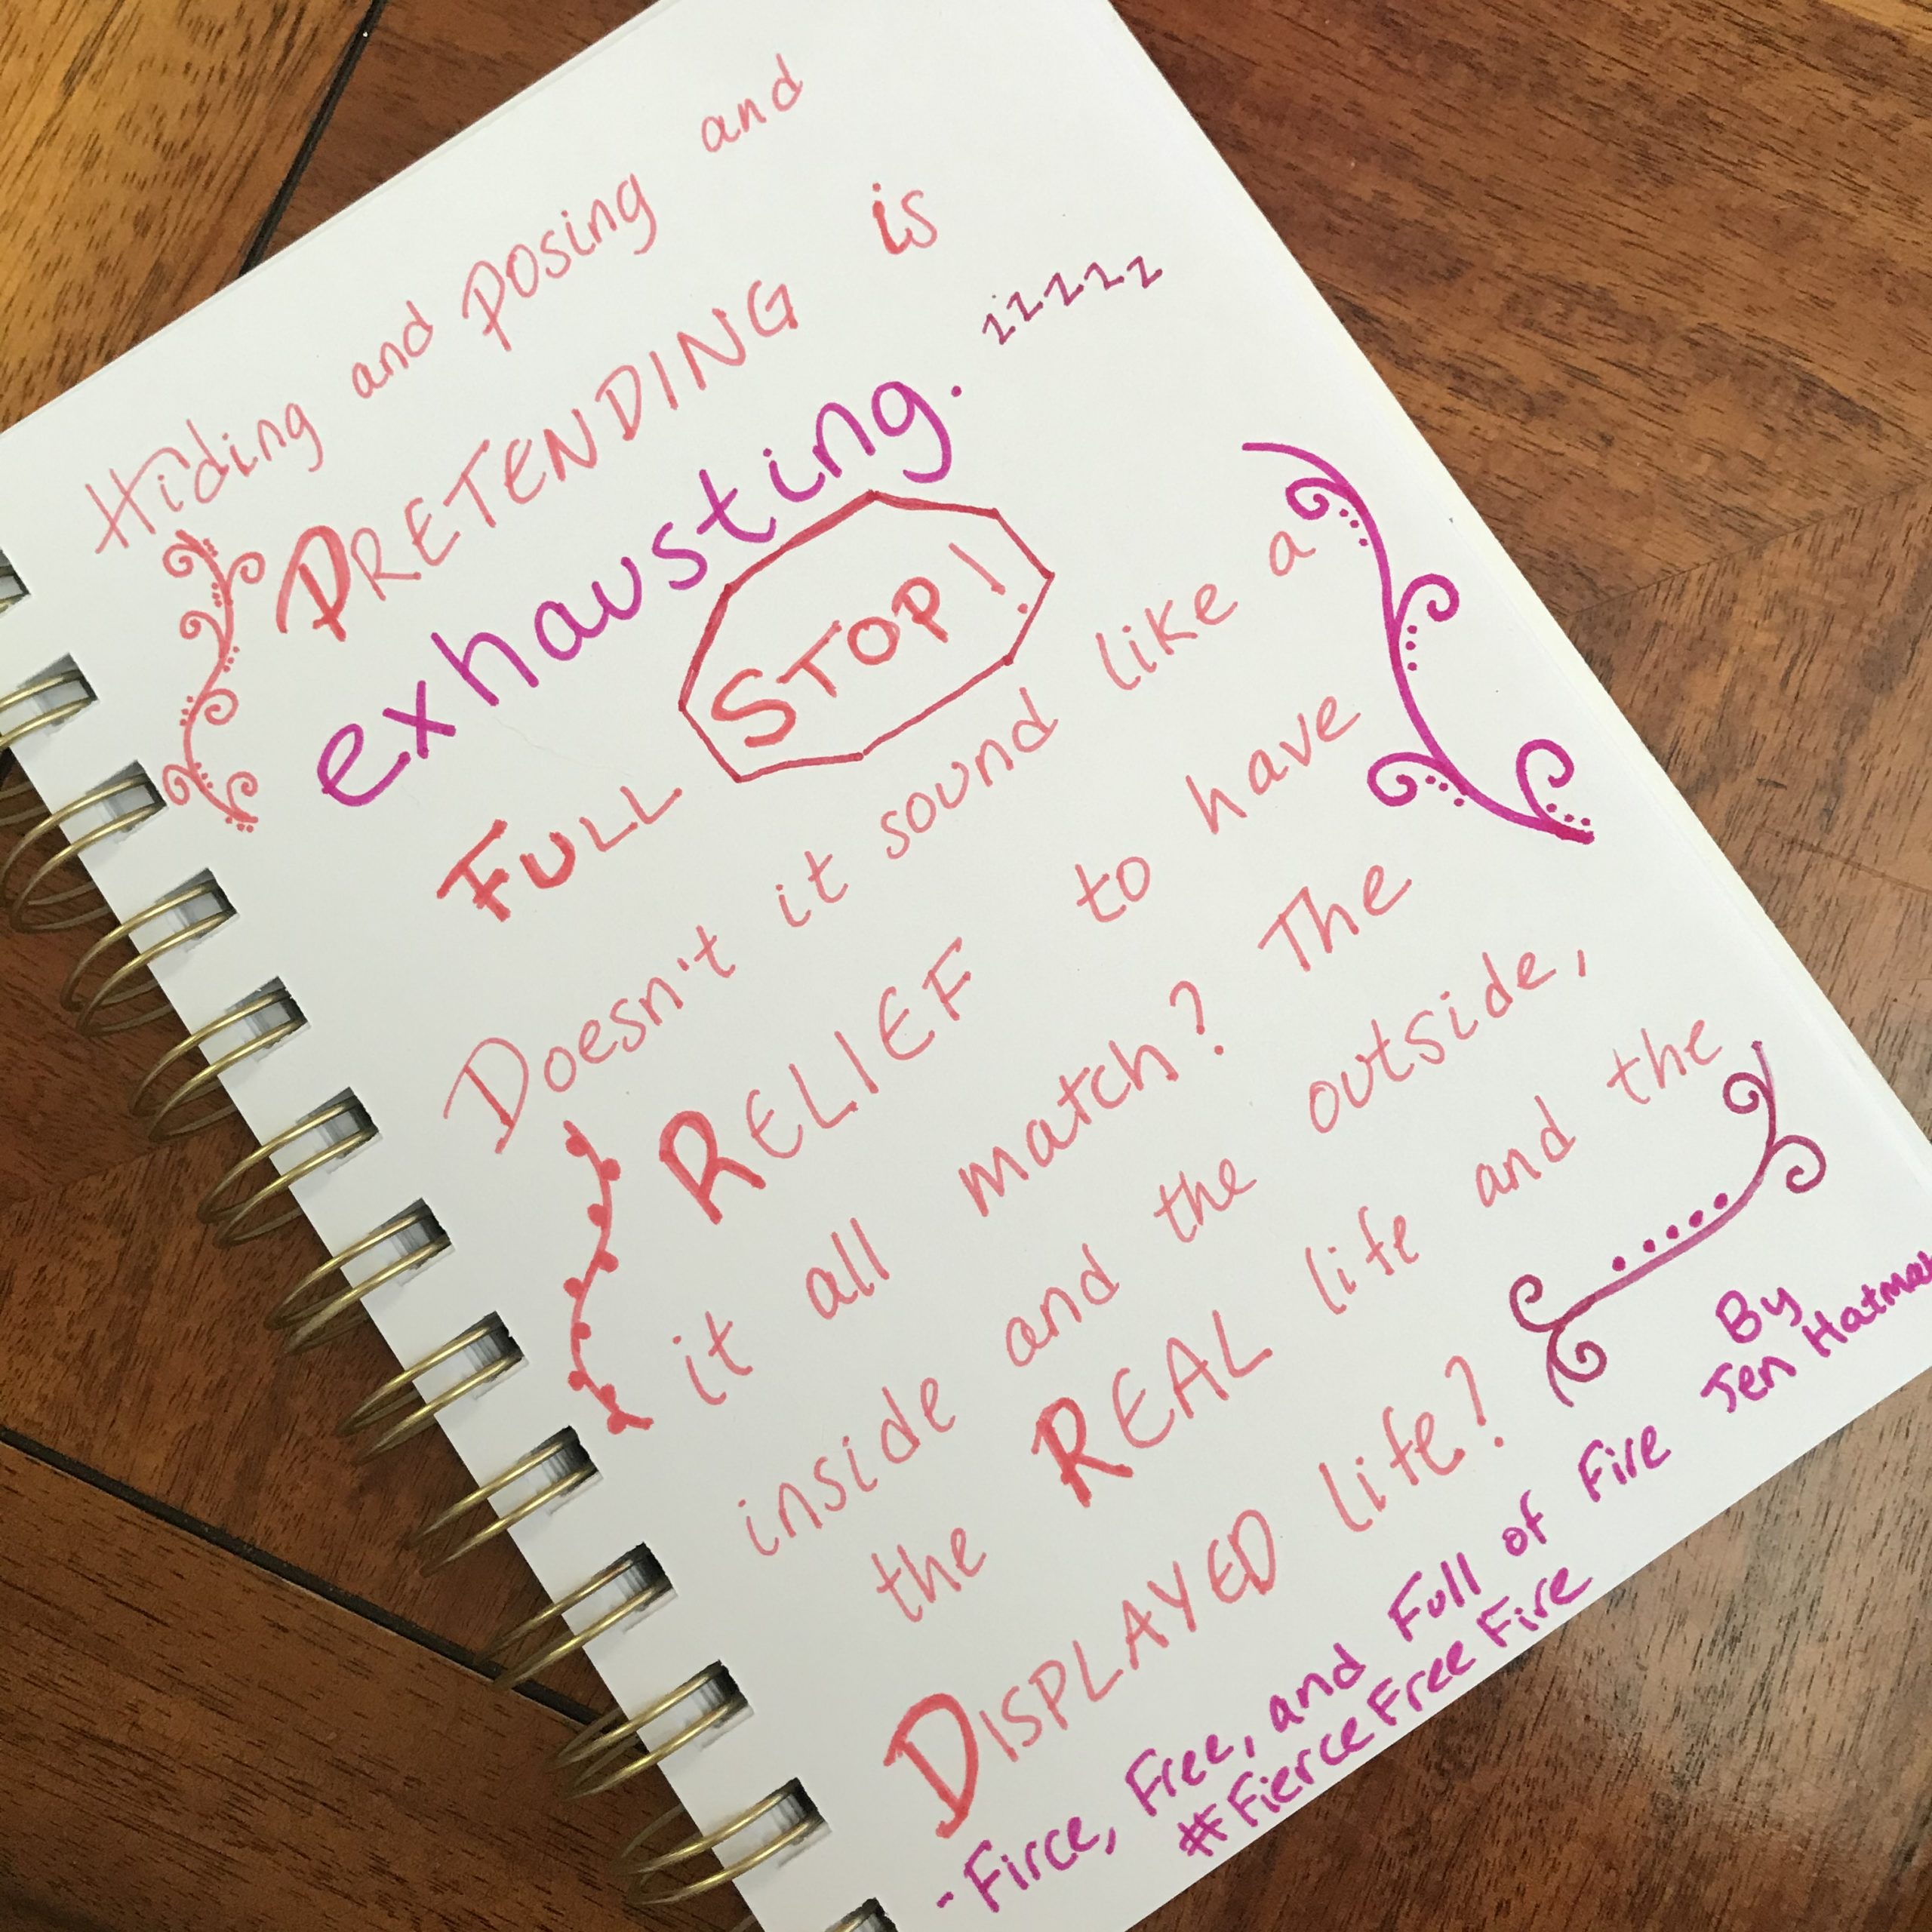 Hiding and posing and
PRETENDING is
exhausting. zzzzz
FULL STOP!
Doesn't it sound like a
RELIEF to have
it all match? The
inside and the outside,
the REAL life and the
DISPLAYED life?
-Firce, Free, and Full of Fire
By
Jen Hatmak
#FierceFreeFire